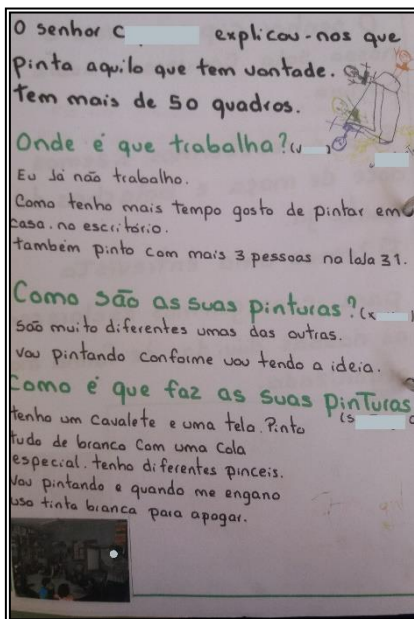 O senhor C explicou-nos que
pinta aquilo que tem vontade.
Tem mais de 50 quadros.
Onde é que trabalha? (J )
Eu Já não trabalho.
Como tenho mais tempo gosto de pintar em
casa. no escritório.
também pinto com mais 3 pessoas na lala 31.
Como são as suas pinturas? (X )
São muito diferentes umas das outras.
Vou pintando conforme vou tendo a ideia.
Como é que faz as suas pinTuras
(S
tenho um Cavalete e uma tela. Pinto
tudo de branco Com uma Cola
especial. tenho diferentes pinceis.
Vou pintando e quando me engano
uso tinta branca para apagar.